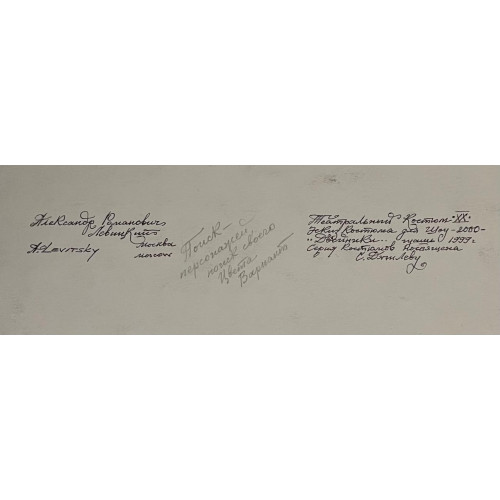 Александр Романович
Левицкий
Москва
A. Levitsky
moscow
Поиск-
персонажей
поиск своего
Цвета
Варианты
Театральный Костюм-XX-
эскиз костюма для Шоу-2000-
"Двойники" гуашь 1999г.
Серия костюмов посвящена
С. Дягилеву